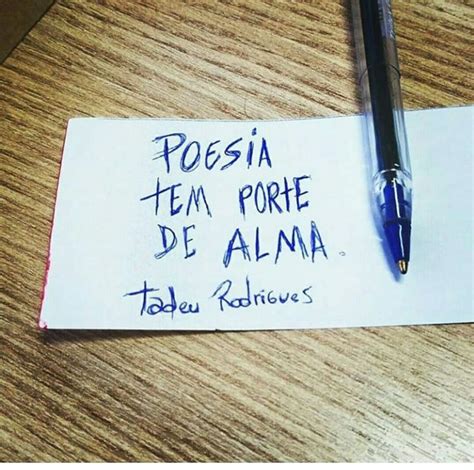 POESIA
TEM PORTE
DE ALMA.
Tadeu Rodrigues